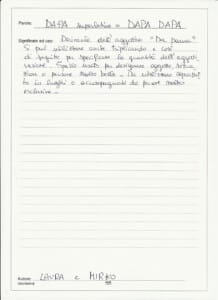 Parola: DAPA superlativo = DAPA DAPA
Significato ed uso: Derivante dall'aggettivo "Da paura"
Si può utilizzare anche triplicando e così
di seguito per specificare la qualità dell'aggetti-
vazione. Spesso usato per designare oggetti,
e persone molto belle. Da utilizzare
in luoghi e accompagnati da persone molto
esclusive.
Autore/
LAURA e MIRKO